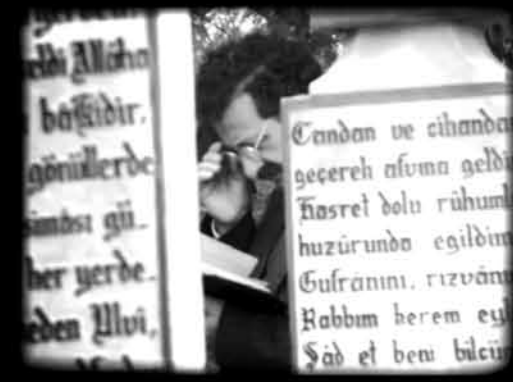 eldi Allâha
bakidir.
gönüllerde
siması gü..
her yerde.
eden Ulvi,
Candan ve cihanda
geçereh afvına geldi
Hasret dolu rûhuml
huzûrunda egildim
Gufrânını, rızvânı
Rabbım kerem eyl
Şâd et beni bilcü